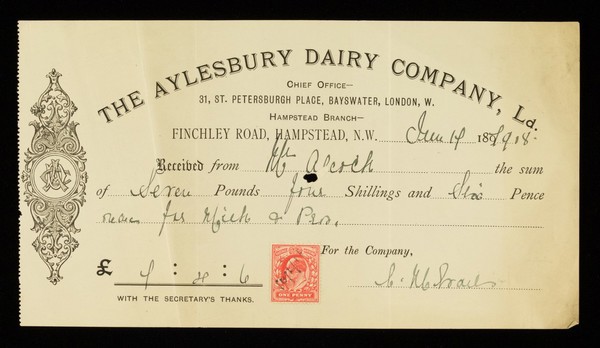 THE AYLESBURY DAIRY COMPANY, Ld.
CHIEF OFFICE—
31, ST. PETERSBURGH PLACE, BAYSWATER, LONDON, W.
HAMPSTEAD BRANCH—
FINCHLEY ROAD, HAMPSTEAD, N.W. June 14 1908
Received from Mr A'cock the sum
of Seven Pounds four Shillings and Six Pence
for Milk & Pros.
For the Company,
£ 7 : 4 : 6
ONE PENNY
WITH THE SECRETARY'S THANKS.